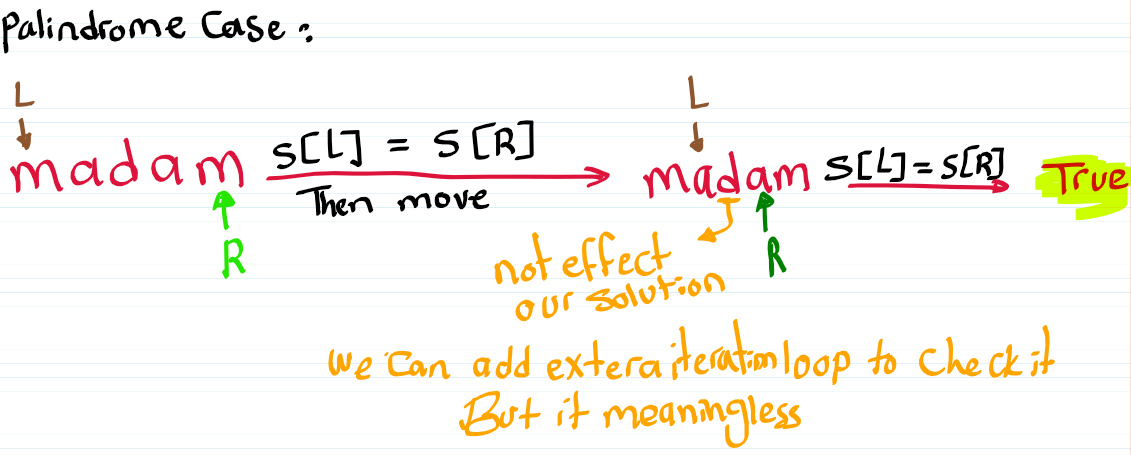 Palindrome Case :
L
L
madam S[L] = S[R] madam S[L]=S[R] True
Then move
R
R
not effect
our solution
we can add extera iteration loop to check it
But it meaningless